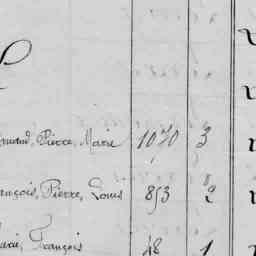 Pierre, Marie 1070 3
François, Pierre, Louis 853 2
Marie, François 48 1